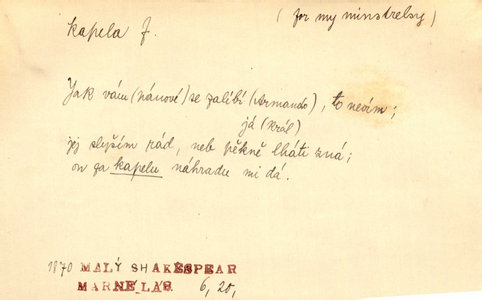 kapela f. (for my minstrelsy)
Jak vám (pánové) se zalíbí (Armando), to nevím;
já (král)
jej slyším rád, neb pěkně lháti zná;
on za kapelu náhradu mi dá.
1870 MALÝ SHAKESPEAR
MARNE LAS. 6, 20,